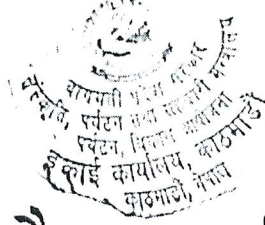 बागमती प्रदेश सरकार
संस्कृति, पर्यटन तथा सहकारी मन्त्रालय
पर्यटन, विकास आयोजना
इकाई कार्यालय, काठमाडौं
काठमाडौं, नेपाल